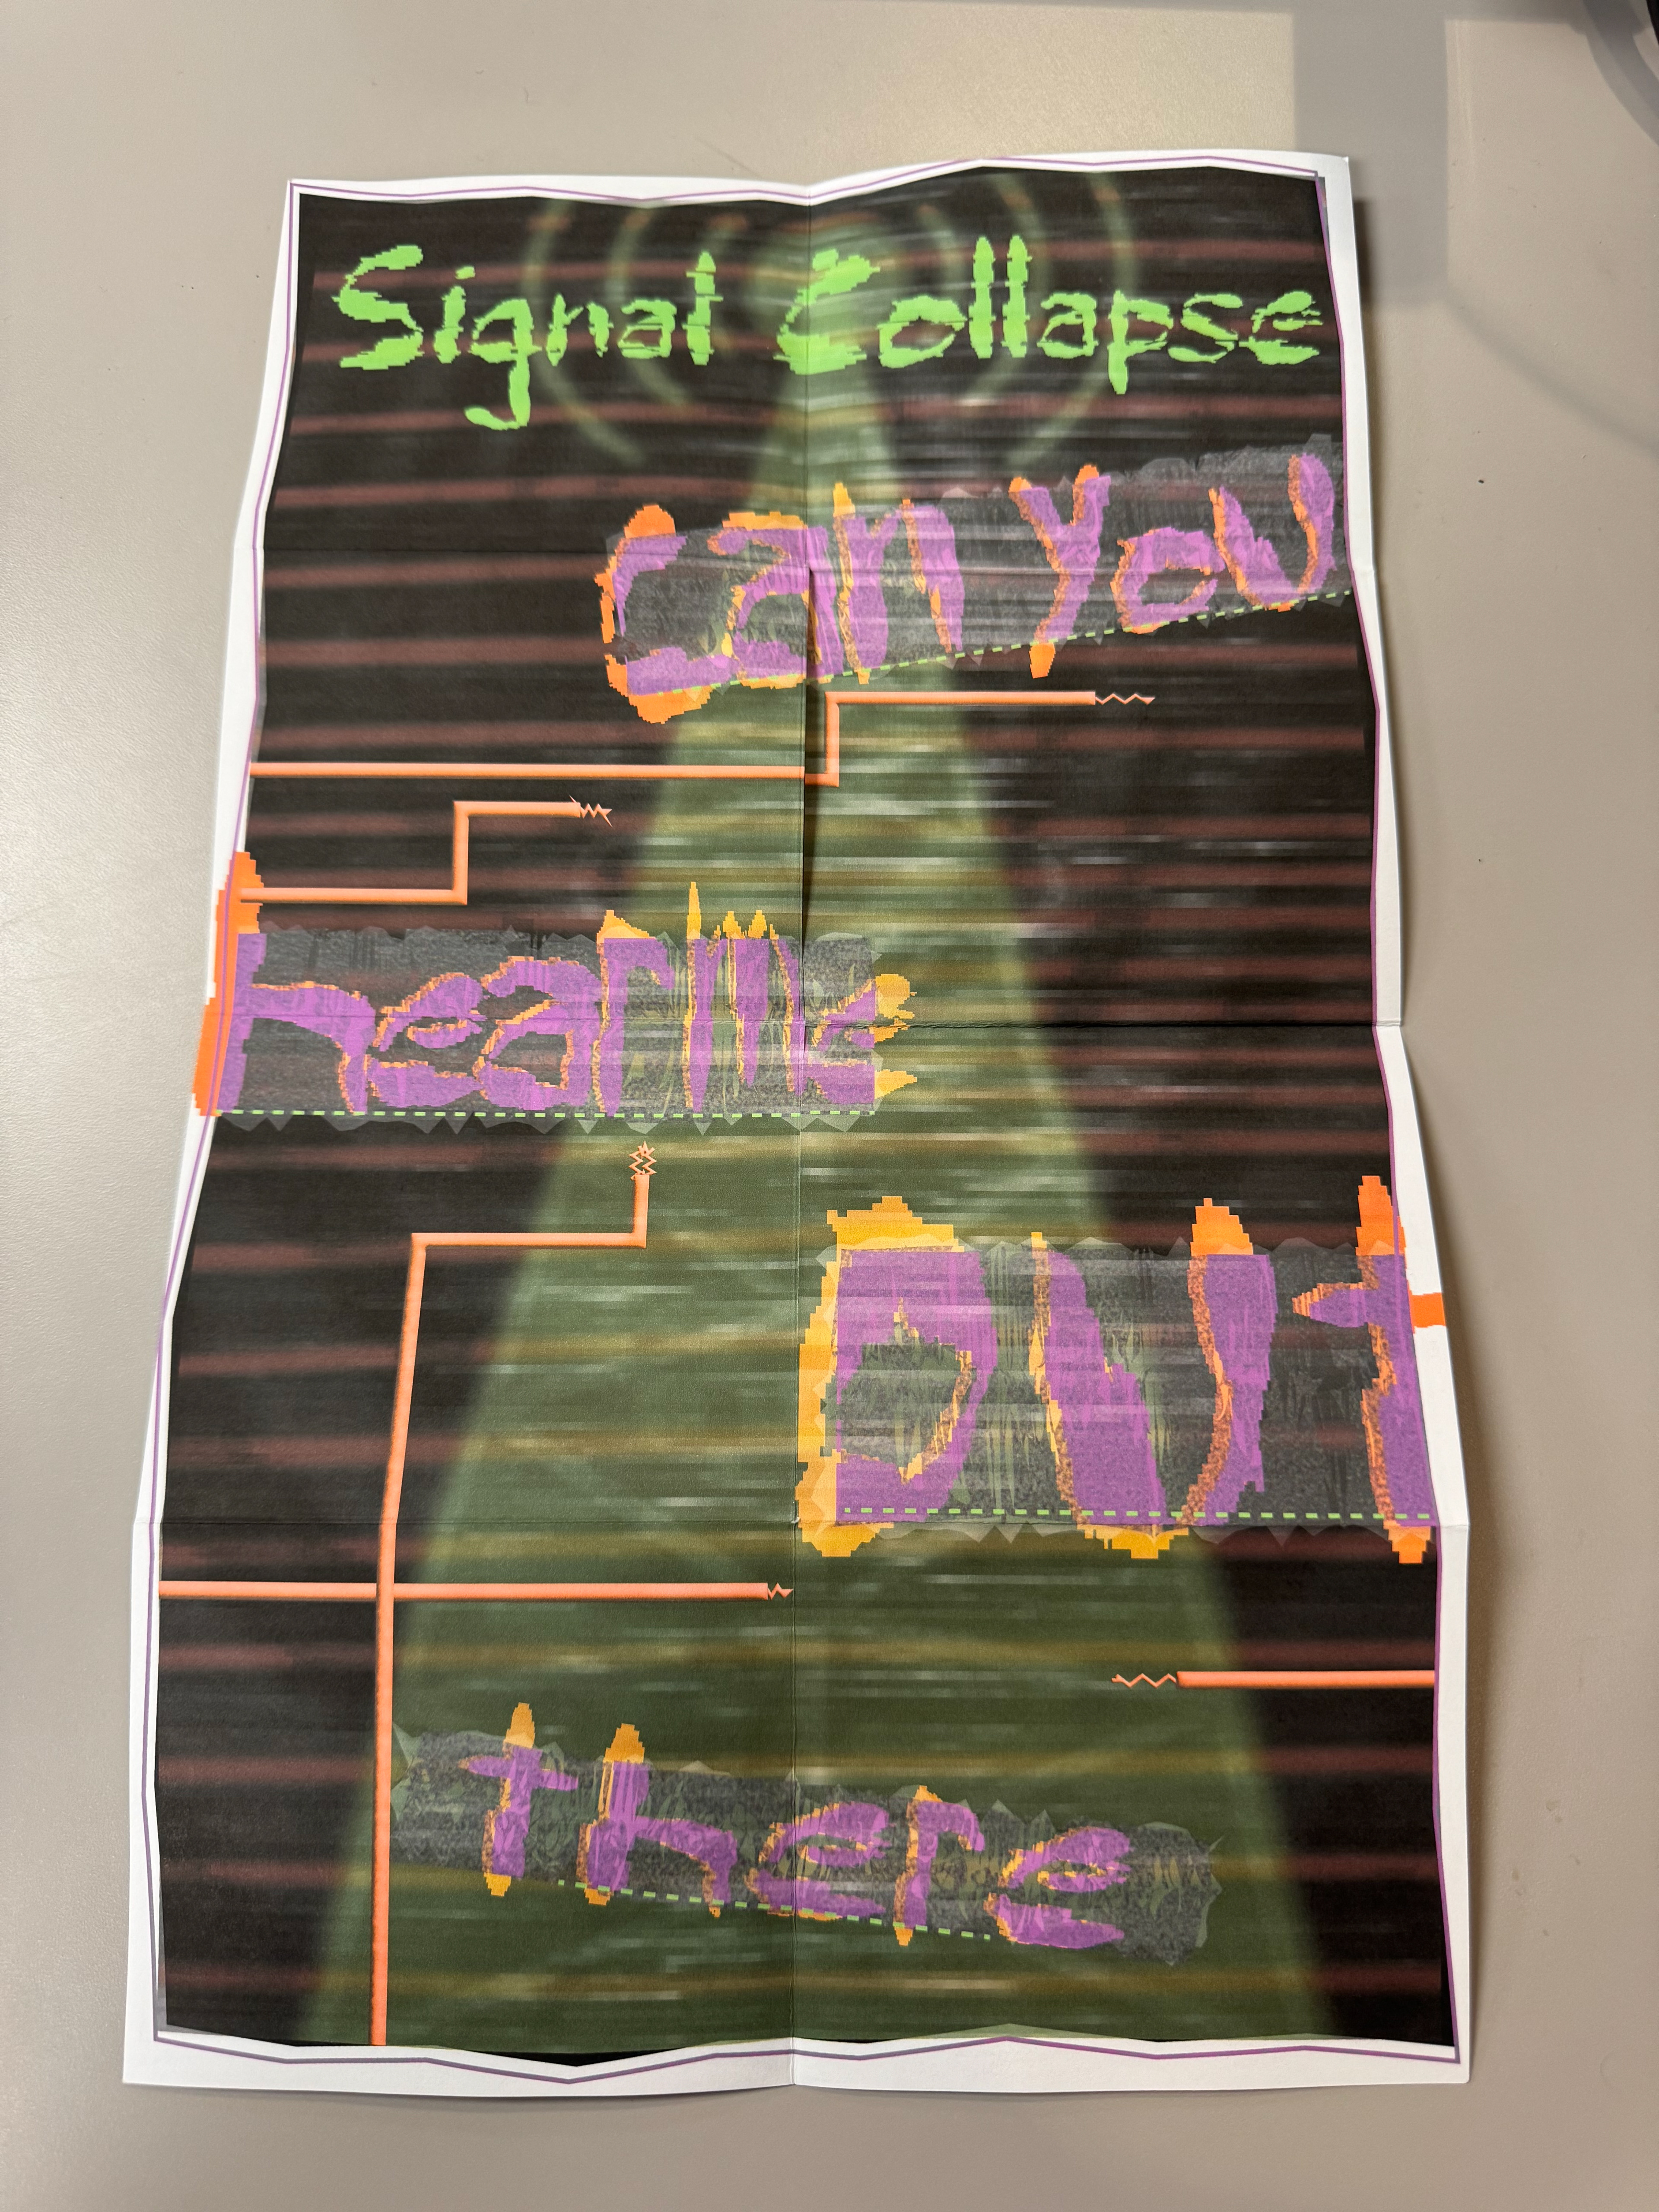 Signal Collapse
can you
hear me
out
there